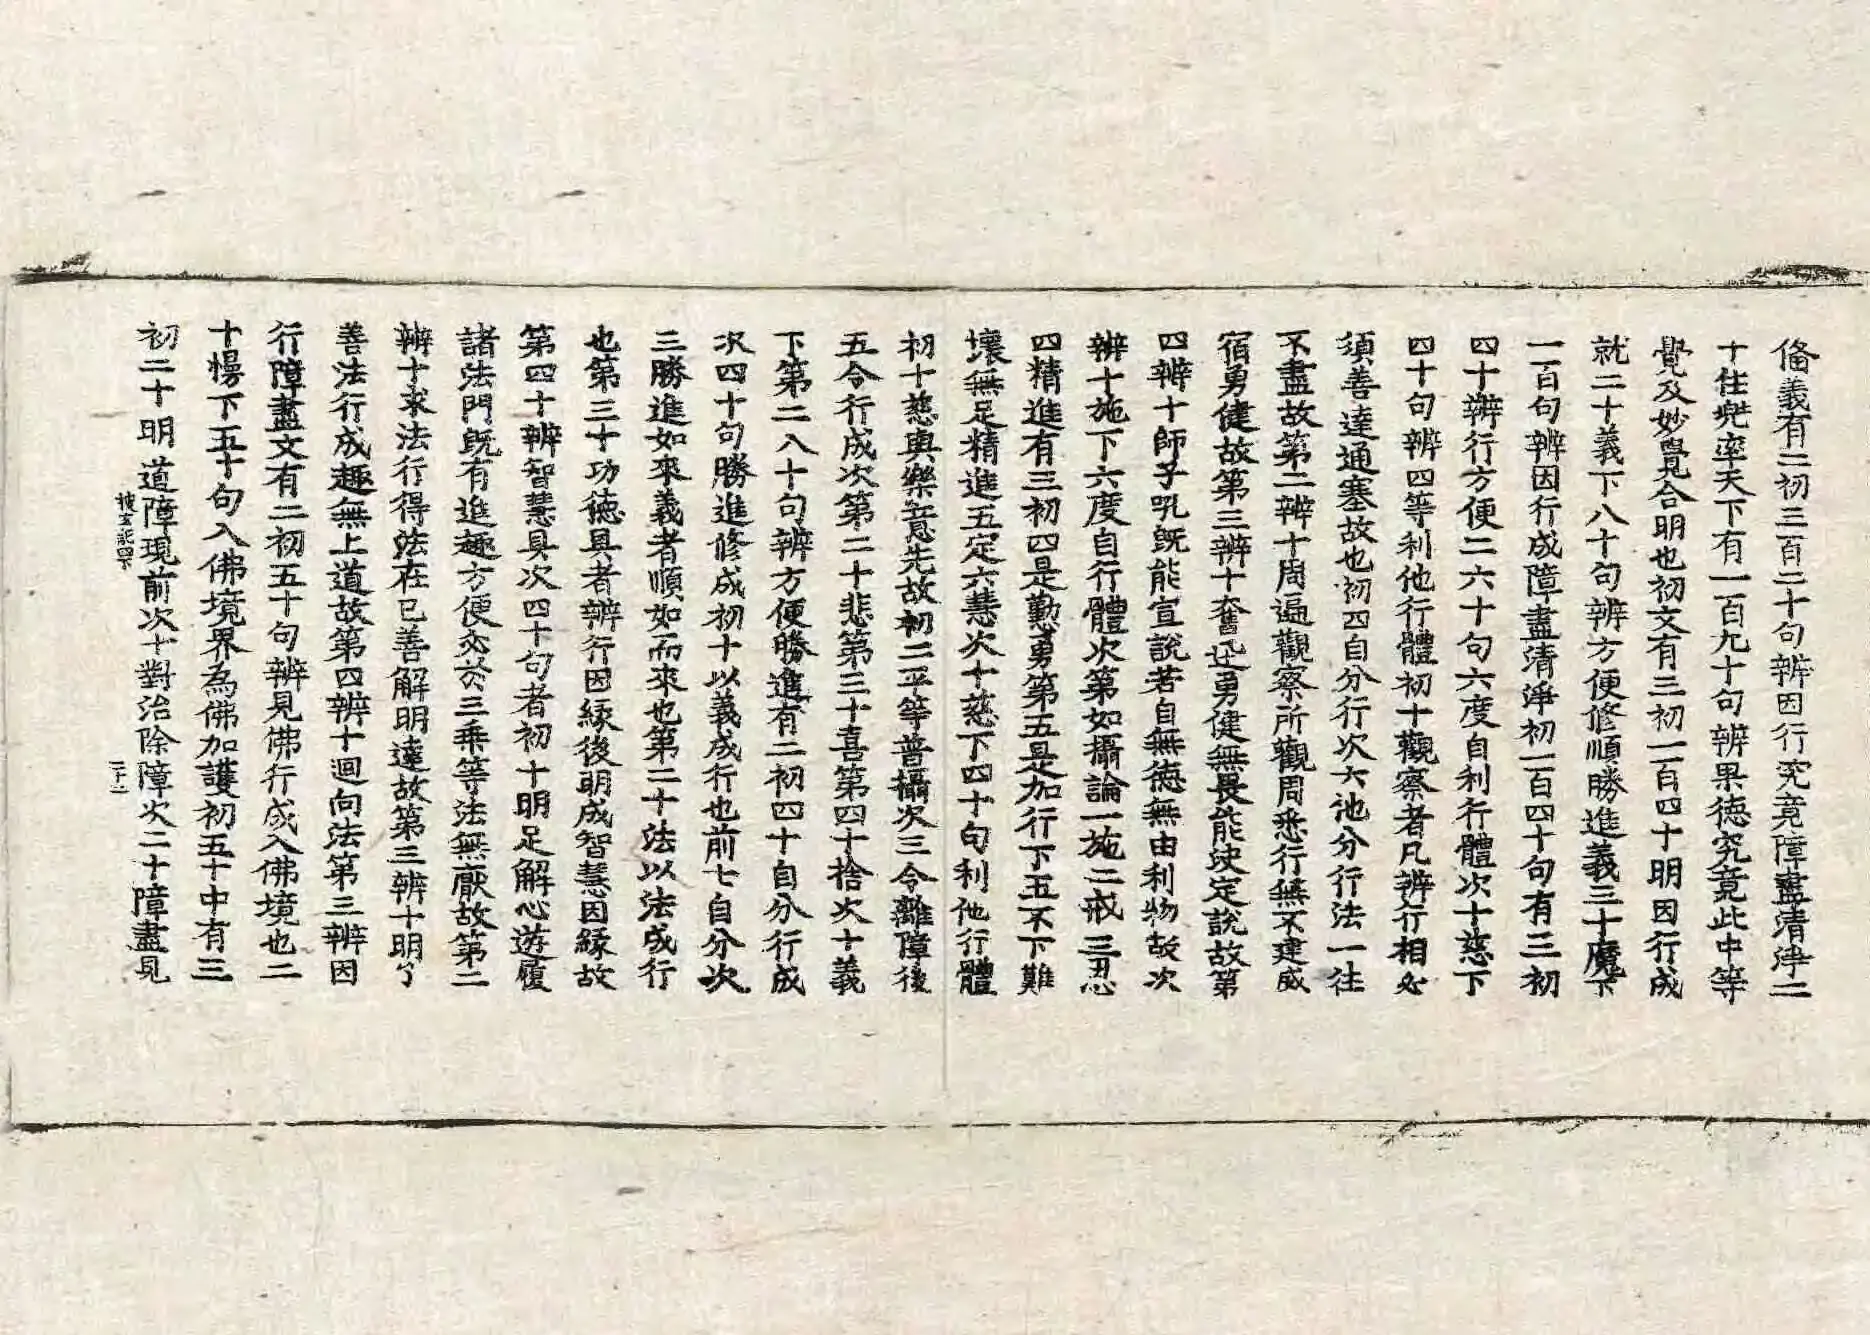 俻義有二初三百二十句辨因行究竟障盡清淨二
十住兜率天下有一百九十句辨果德究竟此中等
覺及妙覺合明也初文有三初一百四十明因行成
就二十義下八十句辨方便修順勝進義三十魔下
一百句辨因行成障盡清淨初一百四十句有三初
四十辨行方便二六十句六度自利行體次十慈下
四十句辨四等利他行體初十觀察者凡辨行相必
須善達通塞故也初四自分行次六他分行法一往
不盡故第二辨十周遍觀察所觀周悉行無不建威
宿勇健故第三辨十奮迅勇健無畏能決定說故第
四辨十師子吼既能宣說若自無德無由利物故次
辨十施下六度自行體次第如攝論一施二戒三忍
四精進有三初四是勤勇第五是加行下五不下難
壞無足精進五定六慧次十慈下四十句利他行體
初十慈與樂意先故初二平等普攝次三令離障後
五令行成次第二十悲第三十喜第四十捨次十義
下第二八十句辨方便勝進有二初四十自分行成
次四十句勝進修成初十以義成行也前七自分次
三勝進如來義者順如而來也第二十法以法成行
也第三十功德具者辨行因緣後明成智慧因緣故
第四十辨智慧具次四十句者初十明足解心遊履
諸法門既有進趣方便交於三乘等法無厭故第二
辨十求法行得法在已善解明達故第三辨十明了
善法行成趣無上道故第四辨十迴向法第三辨因
行障盡文有二初五十句辨見佛行成入佛境也二
十慢下五十句入佛境界為佛加護初五十中有三
初二十明道障現前次十對治除障次二十障盡見
搜玄記四下
二十二